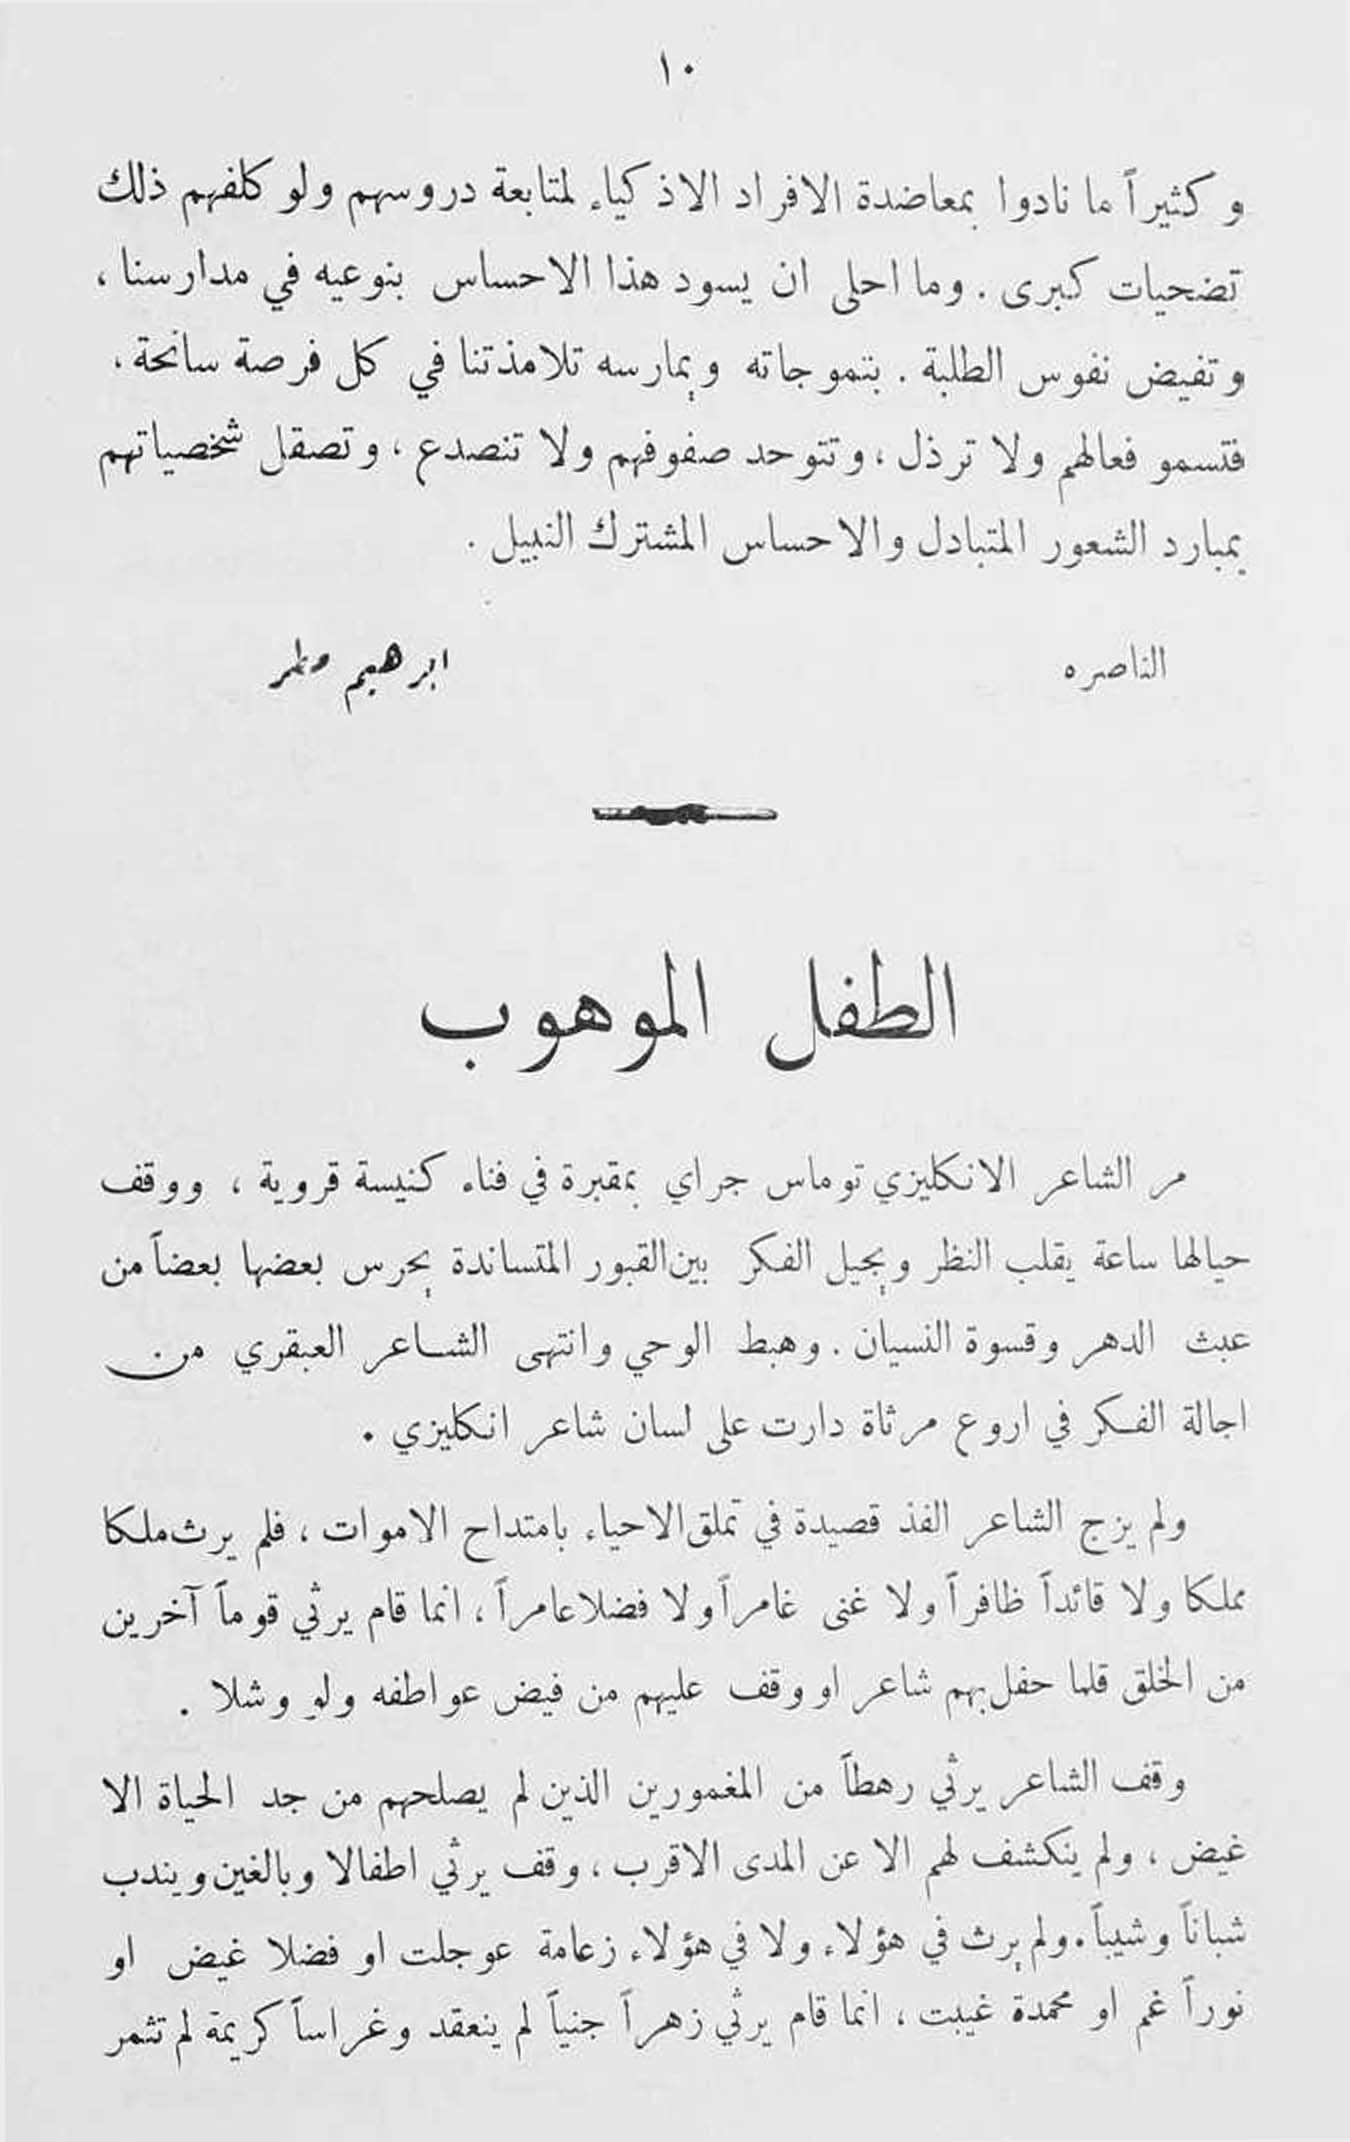 ١٠
وكثيراً ما نادوا بمعاضدة الافراد الاذكياء لمتابعة دروسهم ولو كلفهم ذلك
تضحيات كبرى . وما احلى ان يسود هذا الاحساس بنوعيه في مدارسنا ،
وتفيض نفوس الطلبة . بتموجاته ويمارسه تلامذتنا في كل فرصة سانحة .
فتسمو فعالهم ولا ترذل ، وتتوحد صفوفهم ولا تنصدع ، وتصقل شخصياتهم
بمبارد الشعور المتبادل والاحساس المشترك النبيل .
الناصره ابرهيم مطر
الطفل الموهوب
مر الشاعر الانكليزي توماس جراي بمقبرة في فناء كنيسة قروية ، ووقف
حيالها ساعة يقلب النظر ويجيل الفكر بين القبور المتساندة يحرس بعضها بعضاً من
عبث الدهر وقسوة النسيان . وهبط الوحي وانتهى الشاعر العبقري من
اجالة الفكر في اروع مرثاة دارت على لسان شاعر انكليزي .
ولم يزج الشاعر الفذ قصيدة في تملق الاحياء بامتداح الاموات ، فلم يرث ملكا
مملكا ولا قائداً ظافراً ولا غنى غامراً ولا فضلا عامراً ، انما قام يرثي قوماً آخرين
من الخلق قلما حفل بهم شاعر او وقف عليهم من فيض عواطفه ولو وشلا .
وقف الشاعر يرثي رهطاً من المغمورين الذين لم يصلحهم من جد الحياة الا
غيض ، ولم ينكشف لهم الا عن المدى الاقرب ، وقف يرثي اطفالا وبالغين ويندب
شباناً وشيباً . ولم يرث في هؤلاء ولا في هؤلاء زعامة عوجلت او فضلا غيض او
نوراً غم او محمدة غيبت ، انما قام يرثي زهراً جنياً لم ينعقد وغراساً كريمة لم تثمر